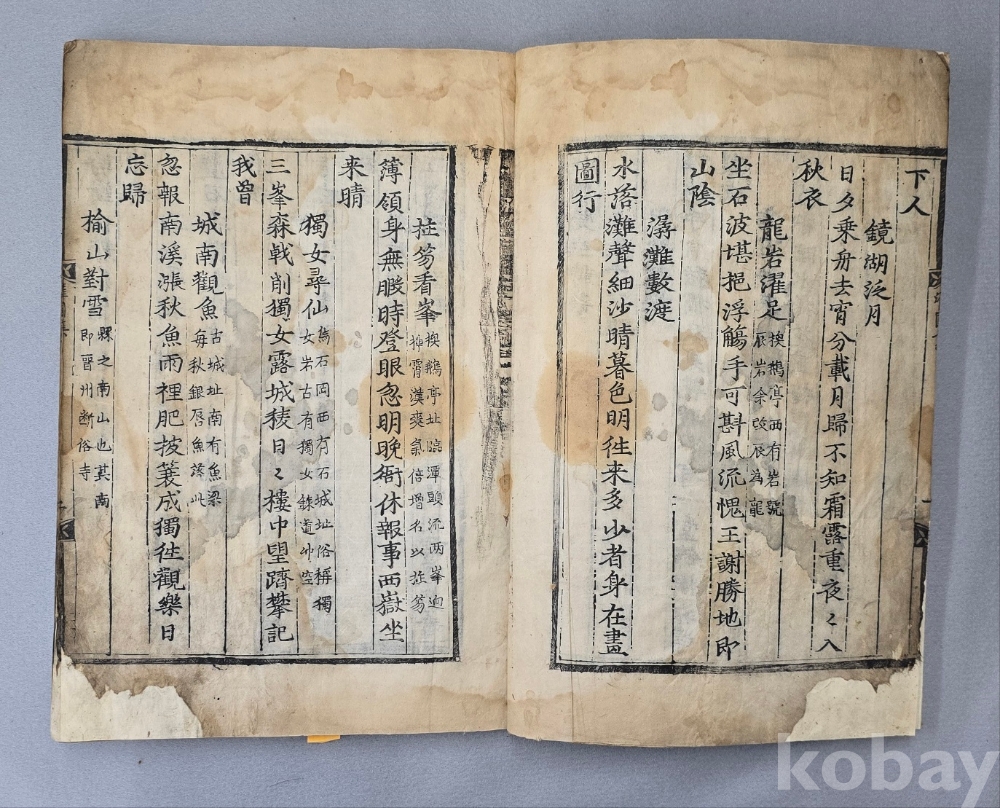 下人
鏡湖泛月
日夕乗舟去宵分載月歸不知霜露重夜〻入
秋衣
龍岩濯足
換鵝亭西有岩號
辰岩余改辰為龍
坐石波堪挹浮觴手可斟風流愧王謝勝地即
山陰
潺灘數渡
水落灘聲細沙晴暮色明徃来多少者身在畫
圖行
拄笏看峯
換鵝亭址臨潭頭流两峯迥
揷霄漢爽氣倍增名以拄笏
簿領身無暇時登眼忽明晚衙休報事西嶽坐
来晴
獨女尋仙
馬石岡西有石城址俗稱獨
女岩古有獨女錬道冲空
三峯森戟削獨女露城稜日〻樓中望躋攀記
我曾
城南觀魚
古城址南有魚梁
每秋銀唇魚落此
忽報南溪漲秋魚雨裡肥披蓑成獨徃觀樂日
忘歸
楡山對雪
縣之南山也其南
即晋州断俗寺
kobay